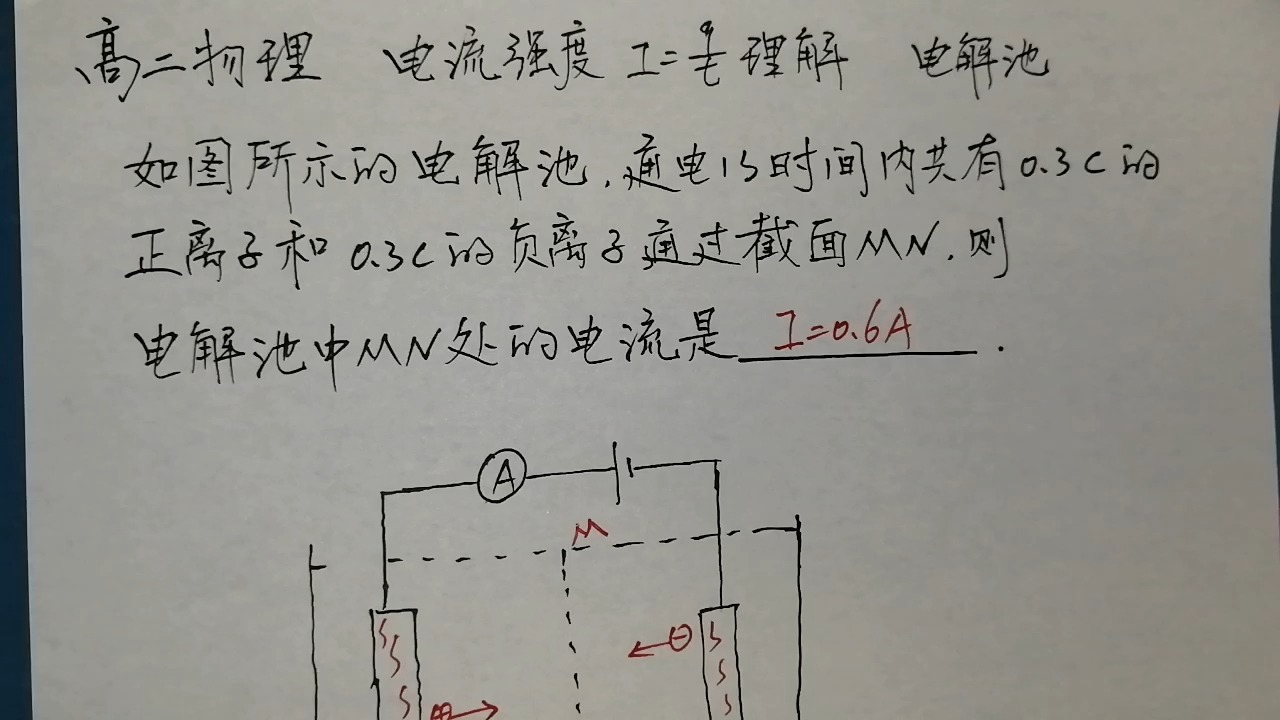 高二物理 电流强度 I=q/t 理解 电解池
如图所示的电解池，通电1s时间内共有0.3C的
正离子和0.3C的负离子通过截面MN，则
电解池中MN处的电流是 I=0.6A .
A
M
⊖
⊕